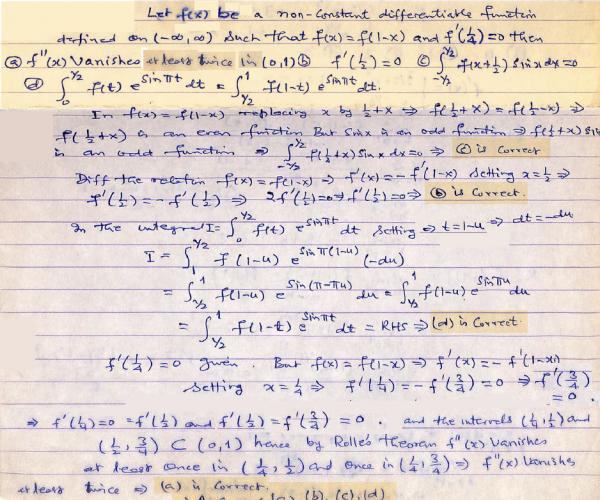 Let f(x) be a non-constant differentiable function
defined on (-∞, ∞) such that f(x) = f(1-x) and f'(1/4) = 0 then
(a) f''(x) vanishes at least twice in (0,1) (b) f'(1/2) = 0 (c) ∫_{-1/2}^{1/2} f(x+1/2) sin x dx = 0
(d) ∫_0^{1/2} f(t) e^{sin πt} dt = ∫_{1/2}^1 f(1-t) e^{sin πt} dt.
In f(x) = f(1-x) replacing x by 1/2+x ⇒ f(1/2+x) = f(1/2-x) ⇒
f(1/2+x) is an even function But sin x is an odd function ⇒ f(1/2+x) sin
is an odd function ⇒ ∫_{-1/2}^{1/2} f(1/2+x) sin x dx = 0 ⇒ (c) is correct
Diff the relation f(x) = f(1-x) ⇒ f'(x) = -f'(1-x) setting x = 1/2 ⇒
f'(1/2) = -f'(1/2) ⇒ 2f'(1/2) = 0 ⇒ f'(1/2) = 0 ⇒ (b) is correct.
In the integral I = ∫_0^{1/2} f(t) e^{sin πt} dt setting ⇒ t = 1-u ⇒ dt = -du
I = ∫_1^{1/2} f(1-u) e^{sin π(1-u)} (-du)
= ∫_{1/2}^1 f(1-u) e^{sin(π-πu)} du = ∫_{1/2}^1 f(1-u) e^{sin πu} du
= ∫_{1/2}^1 f(1-t) e^{sin πt} dt = RHS ⇒ (d) is correct.
f'(1/4) = 0 given. But f(x) = f(1-x) ⇒ f'(x) = -f'(1-x)
setting x = 1/4 ⇒ f'(1/4) = -f'(3/4) = 0 ⇒ f'(3/4) = 0.
⇒ f'(1/4) = 0 = f'(1/2) and f'(1/2) = f'(3/4) = 0. and the intervals (1/4, 1/2) and
(1/2, 3/4) ⊂ (0,1) hence by Rolle's theorem f''(x) vanishes
at least once in (1/4, 1/2) and once in (1/2, 3/4) ⇒ f''(x) vanishes
at least twice ⇒ (a) is correct.
(a), (b), (c), (d)